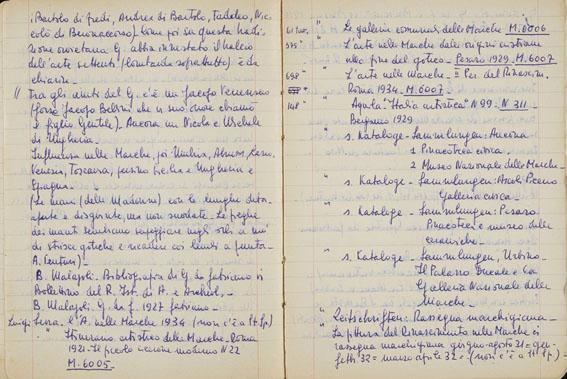 (Bartolo di Fredi, Andrea di Bartolo, Taddeo, Nic-
colò di Buonaccorso). Come poi su questa tradi-
zione orvietana G. abbia innestato il
dell'arte settentr. (lombarda soprattutto) è da
chiarire.
// Tra gli aiuti del G. c'è un Jacopo Veneziano
(forse Jacopo Bellini che in suo onore chiamò
il figlio Gentile). Ancora un Nicola e Michele
di Ungheria.
Influenza nelle Marche, poi Umbria,
Venezia, Toscana, persino e Ungheria e
Spagna.
(Le mani (delle Madonne) con le lunghe dita
aperte e disgiunte, ma non snodate. Le pieghe
dei manti sembrano negli orli a mo'
di gotiche e coi lembi a punta.
A. Venturi).
B. Molajoli. Bibliografia di G. da Fabriano in
Bollettino del R. Ist. di A. e Archeol.
B. Molajoli G. da F. 1927 Fabriano.
Luigi Serra. L'A. nelle Marche 1934 (non c'è a St. Sp.)
" Itinerario artistico delle Marche. Roma
1921. Il piccolo cicerone moderno N 22
M.6005.
" Le gallerie comunali delle Marche M.6006
" L'arte nelle Marche dalle origini cristiane
alla fine del gotico. Pesaro 1929. M.6007
" L'arte nelle Marche. II Per. del Rinascim.
" Roma 1934. M.6007
" "Italia artistica" N 99. N 311
Bergamo 1929
" s. Kataloge - Sammlungen: Ancona
1 Pinacoteca civica.
2 Museo Nazionale delle Marche.
" s. Kataloge - Sammlungen: Ascoli Piceno
Galleria civica.
" s. Kataloge - Sammlungen: Pesaro
Pinacoteca e museo delle
ceramiche.
" s. Kataloge - Sammlungen, Urbino.
Il Palazzo Ducale e la
Galleria Nazionale delle
Marche.
" Zeitschriften: Rassegna marchigiana.
La pittura del Rinascimento nelle Marche in
rassegna marchigiana giugno-agosto 31 = gen-
febb 32 = marzo aprile 32 = (non c'è a St. Sp.)